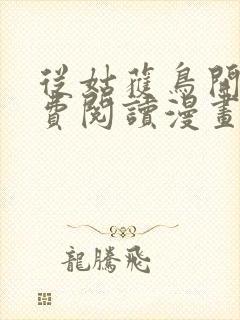 從姑獲鳥開
費閱讀漫畫
龍騰飛